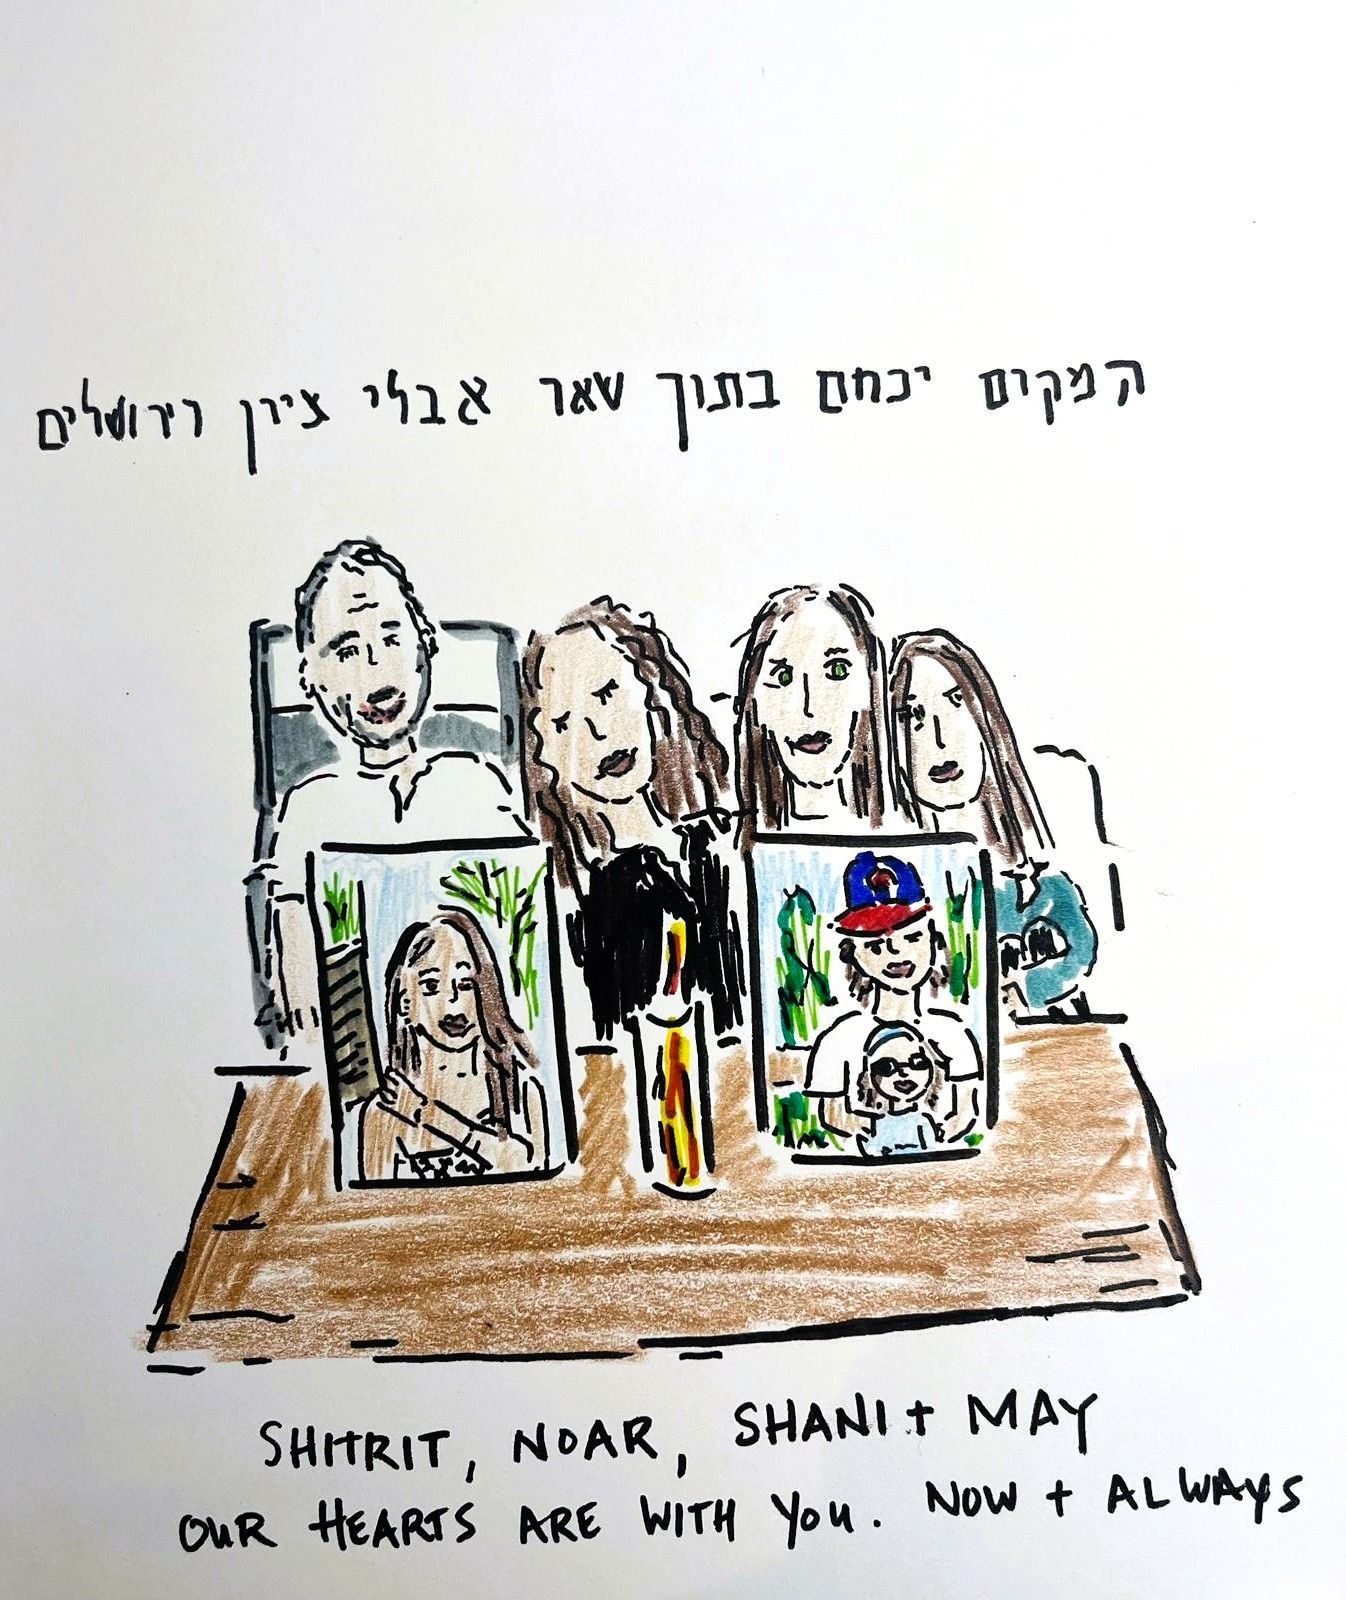 המקום ינחם בתוך שאר אבלי ציון וירושלים
SHITRIT, NOAR, SHANI + MAY
OUR HEARTS ARE WITH YOU. NOW + ALWAYS